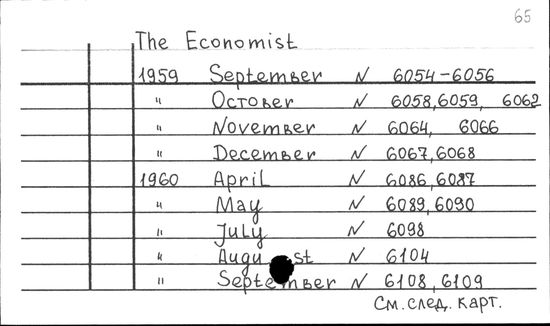 65
The Economist
1959 September N 6054-6056
" October N 6058,6059, 6062
" November N 6064, 6066
" December N 6067,6068
1960 April N 6086,6087
" May N 6089,6090
" July N 6098
" August N 6104
" September N 6108,6109
См.след. карт.